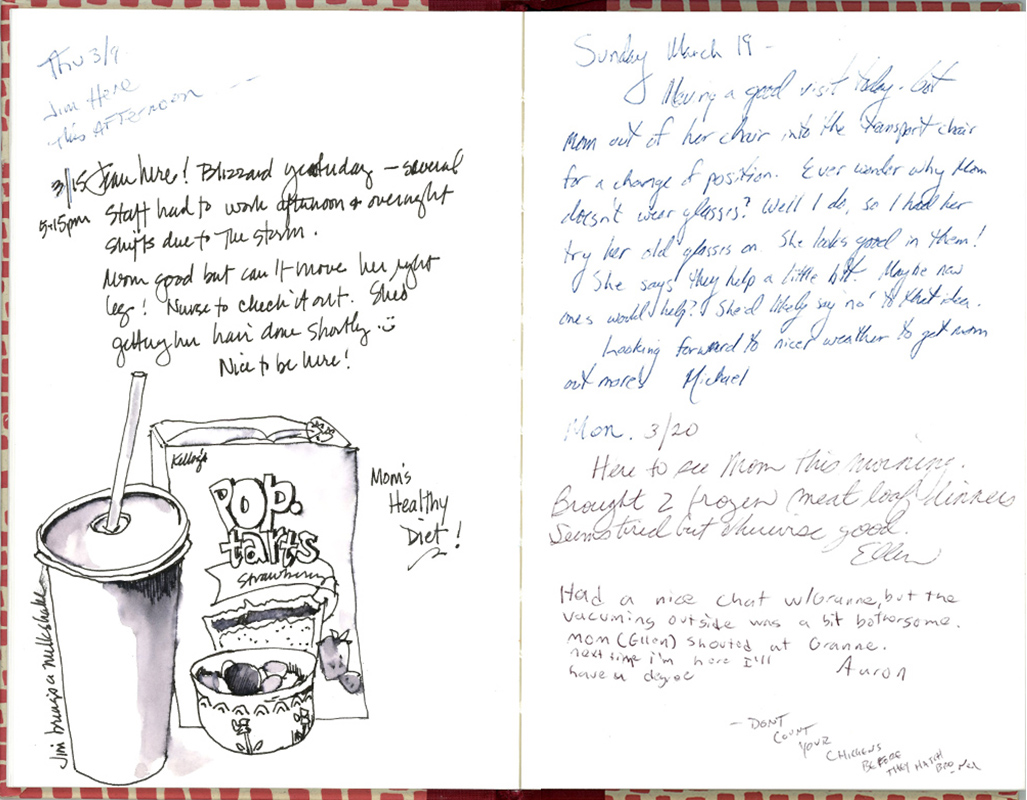 Thu 3/9
Jim Here
this AFTernoon
3/15 Jean here! Blizzard yesterday – several
5:15pm Staff had to work afternoon & overnight
Shifts due to The storm.
Mom good but can't move her right
leg! Nurse to check it out. She's
getting her hair done shortly :)
Nice to be here!
Kellogg's
Pop.
tarts
Strawberry
Mom's
Healthy
Diet!
Jim brings a milkshake
Sunday March 19 –
Having a good visit today. Got
Mom out of her chair into the transport chair
for a change of position. Ever wonder why Mom
doesn't wear glasses? Well I do, so I had her
try her old glasses on. She looks good in them!
She says they help a little bit. Maybe new
ones would help? She'd likely say 'no' to that idea.
Looking forward to nicer weather to get mom
out more. Michael
Mon. 3/20
Here to see Mom this morning.
Brought 2 frozen meat loaf dinners
Seems tired but otherwise good.
Ellen
Had a nice chat w/Granne, but the
vacuming outside was a bit bothersome.
Mom (Ellen) shouted at Granne.
next time i'm here I'll
have a degree
Aaron
– DONT
COUNT
YOUR
CHICKENS
BEFORE
THEY HATCH